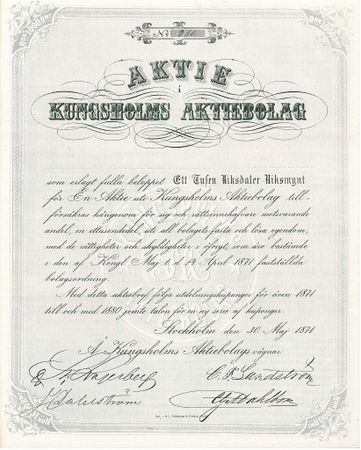 AKTIE
i
KUNGSHOLMS AKTIEBOLAG
som erlagt fulla beloppet Ett Tusen Riksdaler Riksmynt
för En Aktie uti Kungsholms Aktiebolag till-
försäkras härigenom för sig och rättsinnehafvare motsvarande
andel, en ettusendel, uti all bolagets fasta och lösa egendom,
med de rättigheter och skyldigheter i öfrigt, som äro bestämde
i den af Kongl. Maj:t d. 14 April 1871 fastställda
bolagsordning.
Med detta aktiebref följa utdelningskuponger för åren 1871
till och med 1880 jemte talon för en ny serie af kuponger.
Stockholm den 30 Maj 1871
Å Kungsholms Aktiebolags vägnar
Hagerberg
C. F. Sundström
Dahlström
Dahlbom